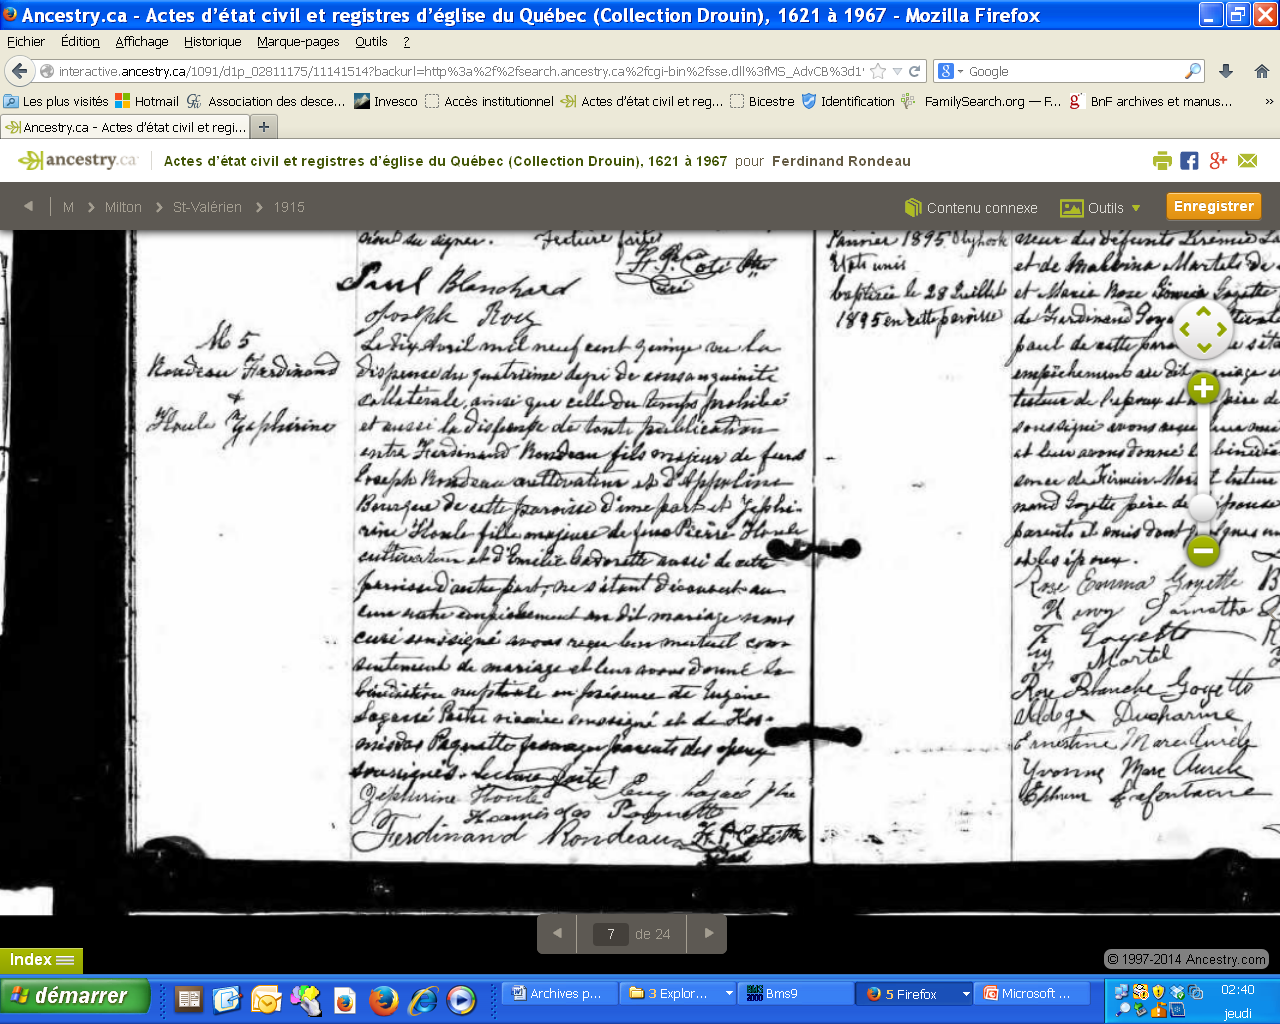 Ancestry.ca - Actes d'état civil et registres d'église du Québec (Collection Drouin), 1621 à 1967 - Mozilla Firefox
Fichier Édition Affichage Historique Marque-pages Outils ?
interactive.ancestry.ca/1091/d1p_02811175/11141514?backurl=http%3a%2f%2fsearch.ancestry.ca%2fcgi-bin%2fsse.dll%3fMS_AdvCB%3d1 Google
Les plus visités Hotmail Association des desce... Invesco Accès institutionnel Actes d'état civil et reg... Bicestre Identification FamilySearch.org — F... BnF archives et manus... »
Ancestry.ca - Actes d'état civil et regi... +
ancestry.ca Actes d'état civil et registres d'église du Québec (Collection Drouin), 1621 à 1967 pour Ferdinand Rondeau
M Milton St-Valérien 1915 Contenu connexe Outils Enregistrer
signer. Lecture faite
F. P. Coté Ptre
curé
Paul Blanchard
Joseph Roy
M 5
Rondeau Ferdinand
&
Houle Zéphirine
Le dix Avril mil neuf cent quinze vu la
dispense du quatrième degré de consanguinité
collatérale, ainsi que celle du temps prohibé
et aussi la dispense de toute publication
entre Ferdinand Rondeau fils majeur de feu
Joseph Rondeau cultivateur et d'Appoline
Bourque de cette paroisse d'une part et Zéphi-
rine Houle fille majeure de feu Pierre Houle
cultivateur et d'Emilie Cadorette aussi de cette
paroisse d'autre part; ne s'étant découvert au-
cun autre empêchement au dit mariage nous
curé soussigné avons reçu leur mutuel con-
sentement de mariage et leur avons donné la
bénédiction nuptiale en présence de Eugène
Lagassé Prêtre vicaire soussigné et de Hor-
misdas Paquette fromager parents des époux
soussignés. Lecture faite
Zéphirine Houle Eug Lagacé ptre
Hormisdas Paquette
Ferdinand Rondeau F. P. Coté Ptre
curé
Janvier 1895 Olyhook
Etats unis
baptisée le 28 Juillet
1895 en cette paroisse
neur des défunts Jérémie
et de Malvina Martel
et Marie Rose Goyette
de Ferdinand
paul de cette
empêchement au dit mariage
tuteur de l'époux et père de
soussigné avons
et leur avons donné la bénédic
sence de Firmin Martel tuteur
nand Goyette père de
parents et amis dont
et les époux.
Rose Emma Goyette
Henry Lamothe
F Goyette
F Martel
Rose Blanche Goyette
Aldege Ducharme
Ernestine Marc Aurele
Yvonne Marc Aurele
Ephrem Lafontaine
7 de 24
Index © 1997-2014 Ancestry.com
démarrer Archives p... 3 Explor... Bms9 5 Firefox Microsoft ... 02:40
jeudi